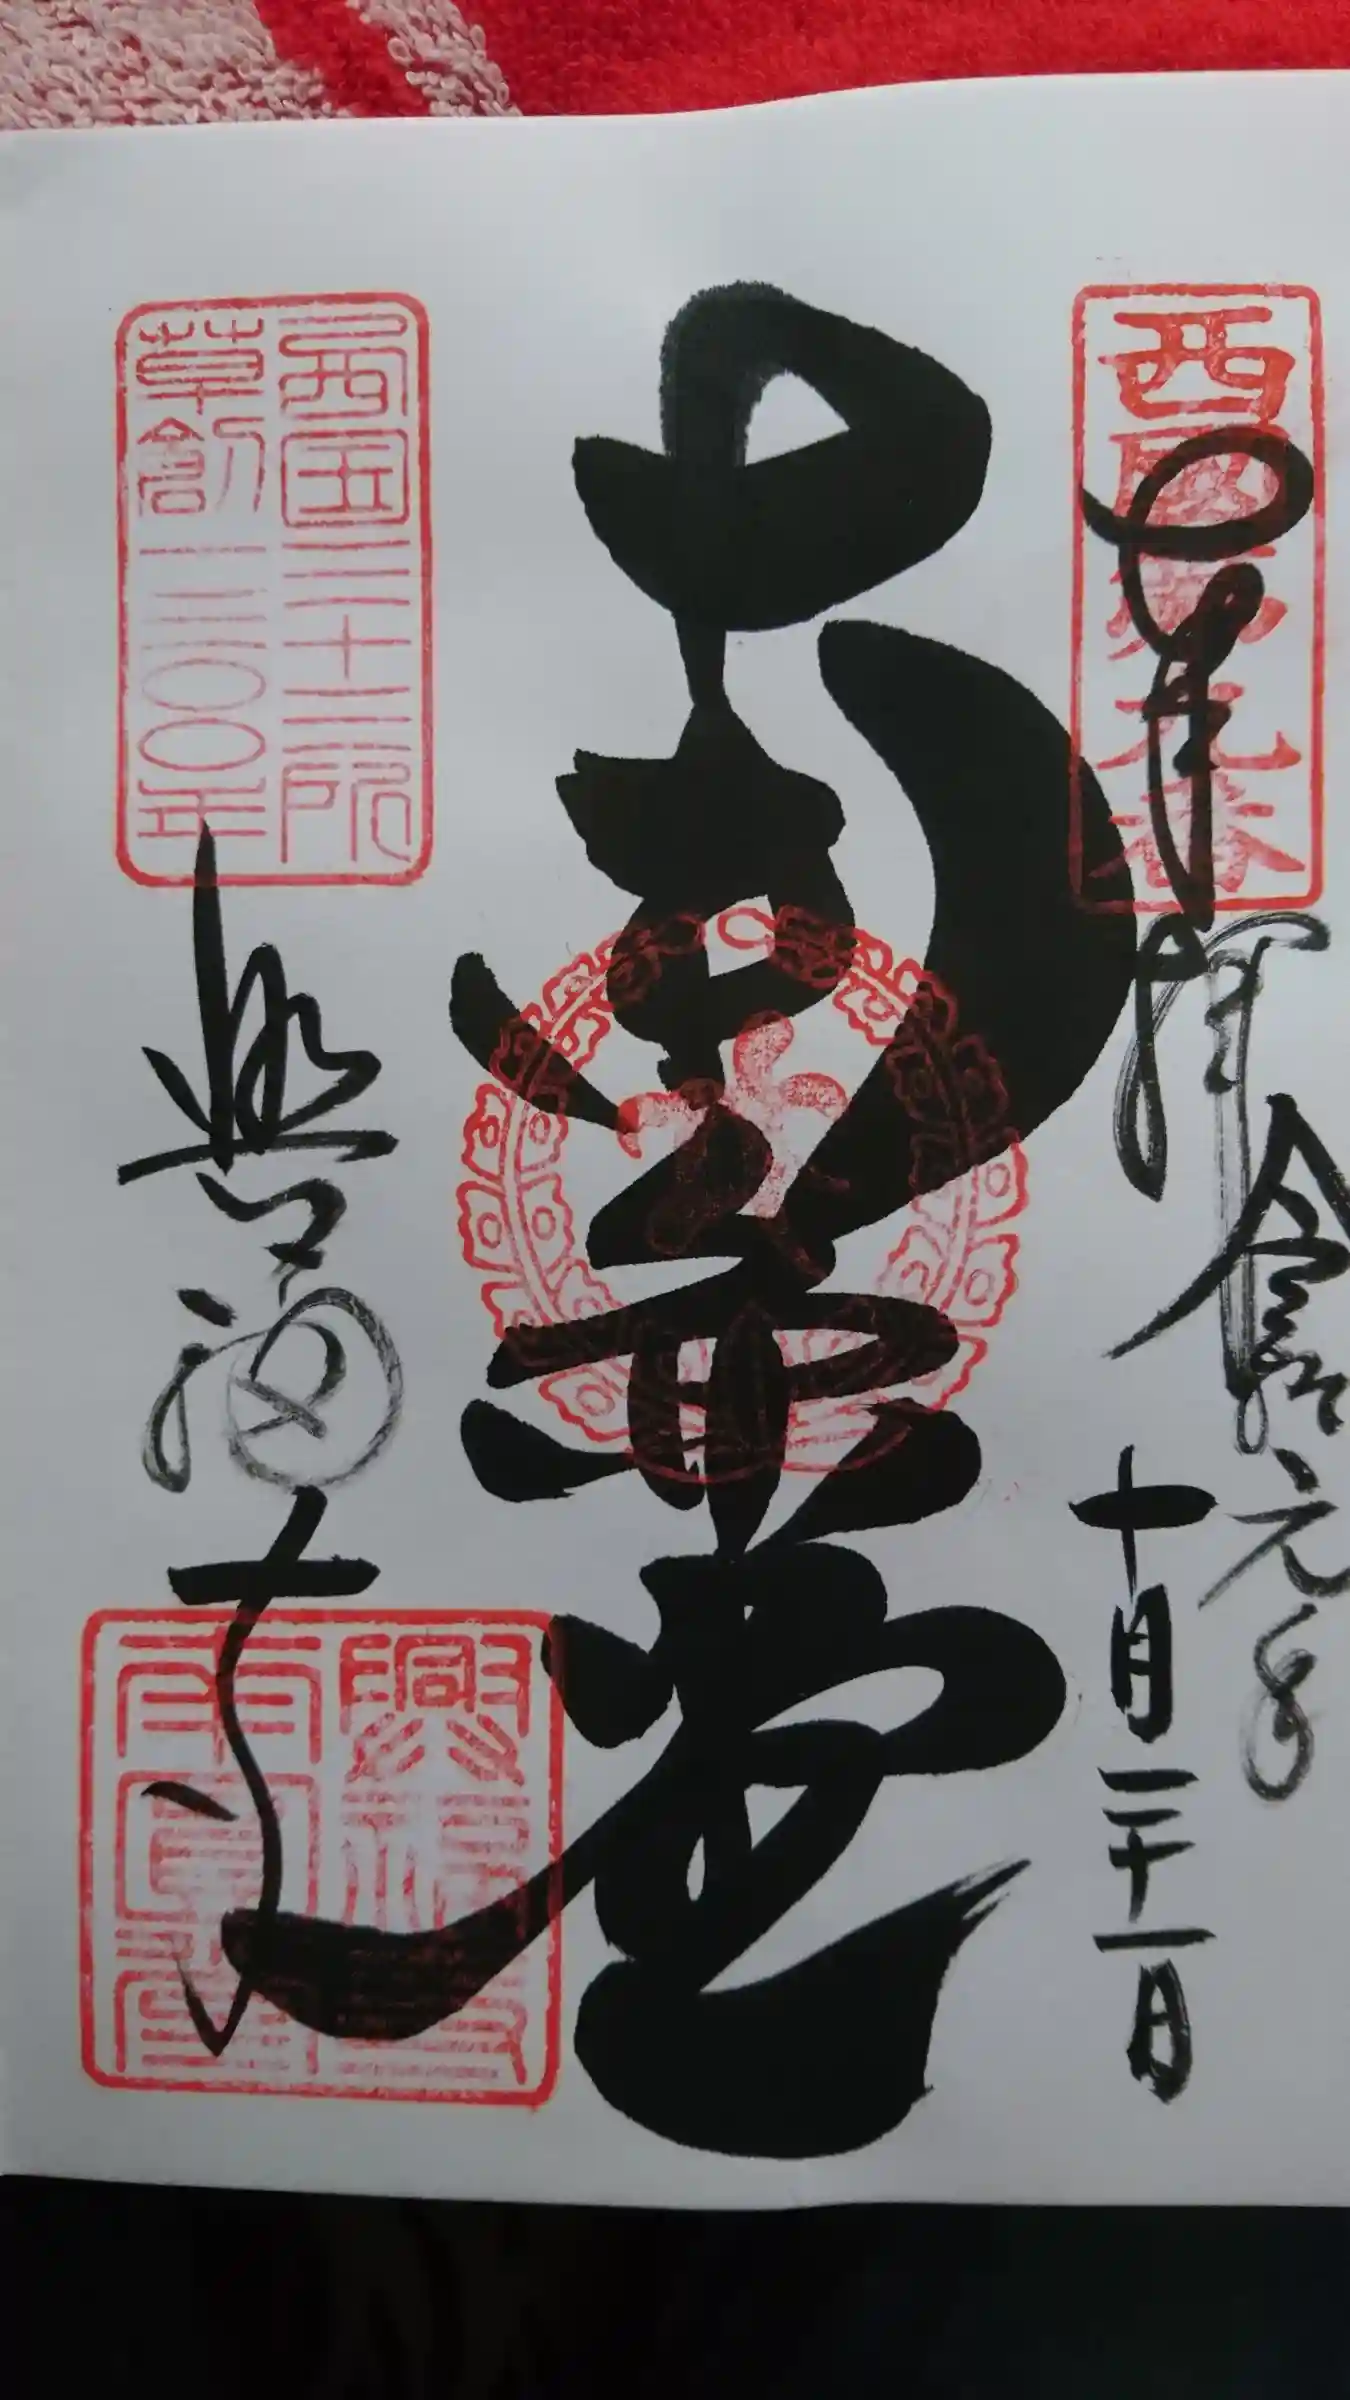 西國第九番
奉拝
令和元年
十月二十一日
南円堂
西国三十三所
草創一三〇〇年
興福寺
興福寺
南円堂